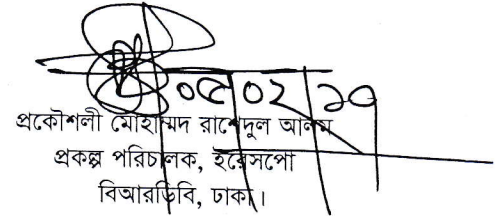 ০৫/০২/১৭
প্রকৌশলী মোহাম্মদ রাশেদুল আলম
প্রকল্প পরিচালক, ইরেসপো
বিআরডিবি, ঢাকা।